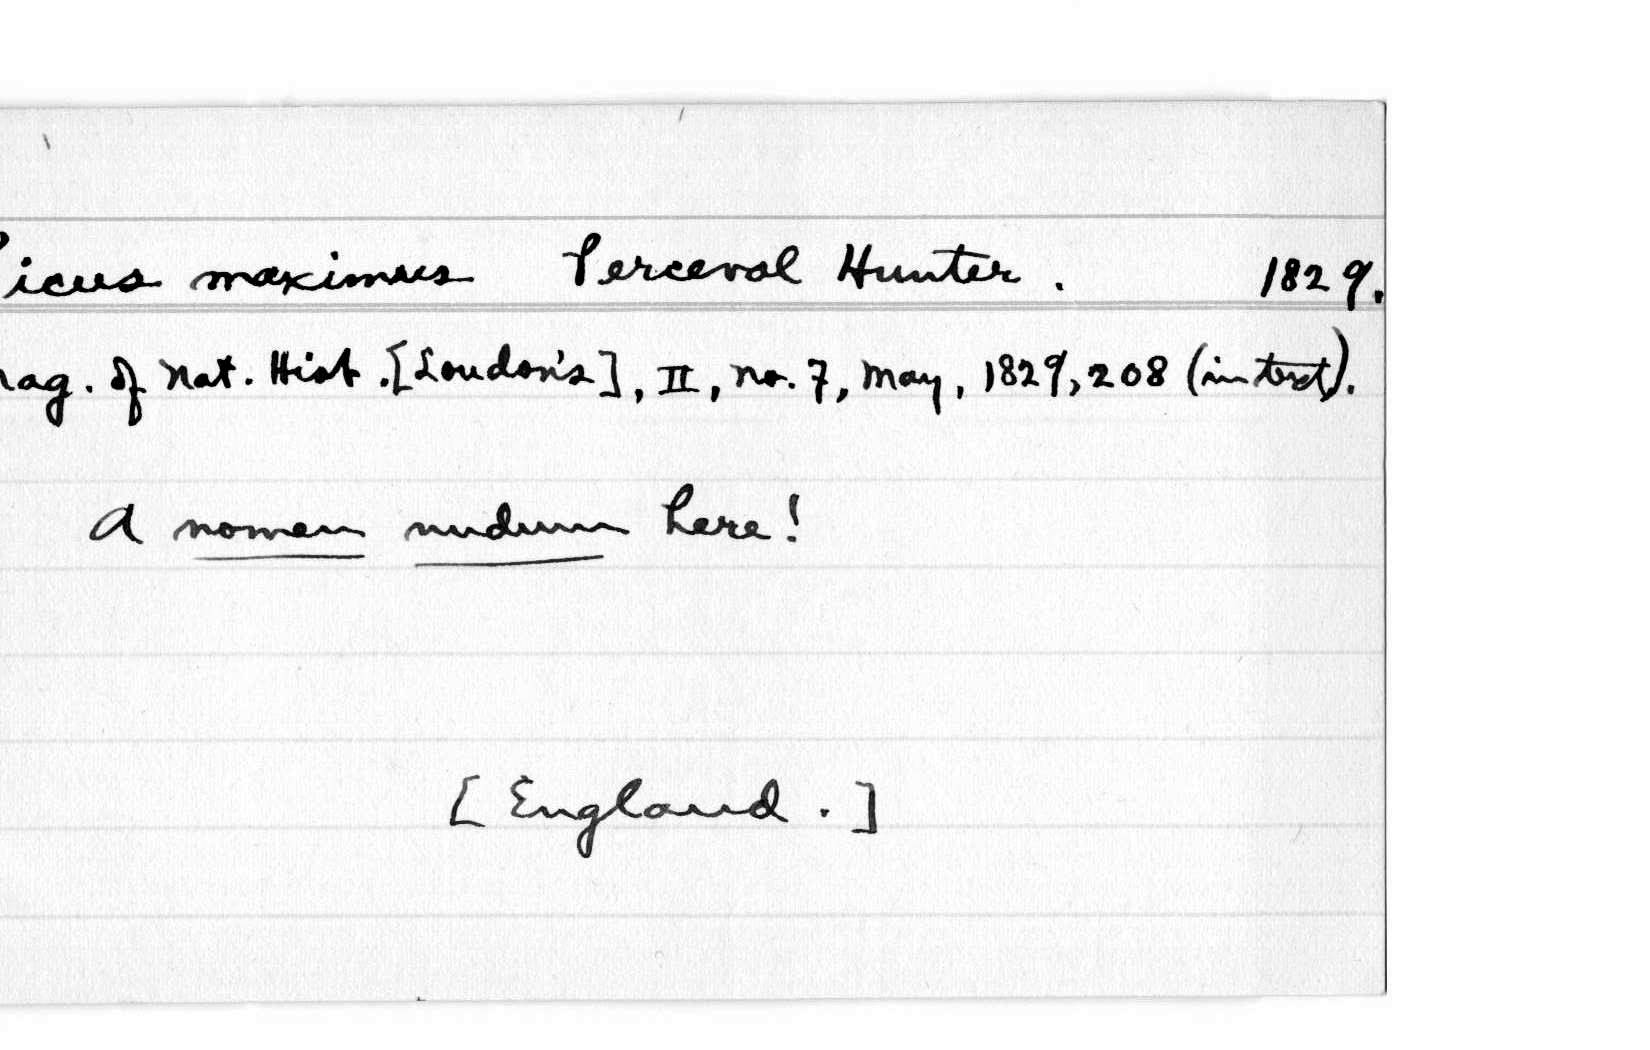 Picus maximus Perceval Hunter. 1829.
Mag. of Nat. Hist. [Loudon's], II, no. 7, May, 1829, 208 (in text).
A nomen nudum here!
[England.]